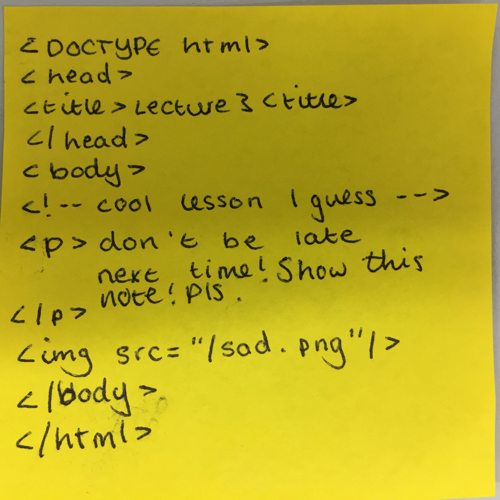 <DOCTYPE html>
<head>
<title>Lecture 3<title>
</head>
<body>
<!-- cool lesson I guess -->
<p> don't be late
next time! Show this
note! pls.
</p>
<img src="/sad.png"/>
</body>
</html>